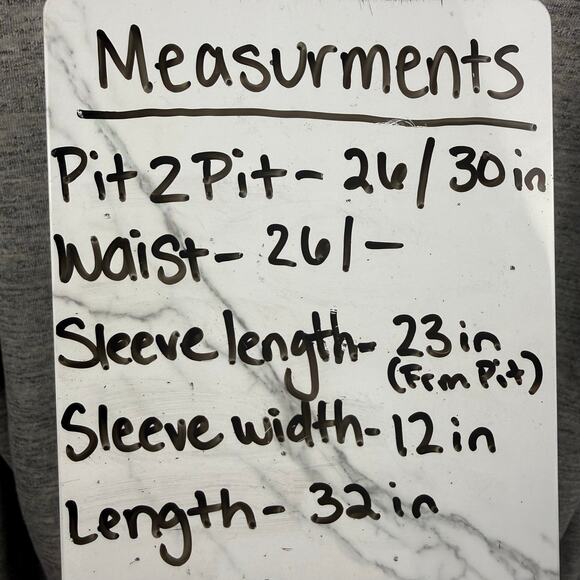 Measurments
Pit2Pit- 26/30in
Waist- 26/-
Sleeve length- 23in
(Frm Pit)
Sleeve width- 12in
Length- 32in